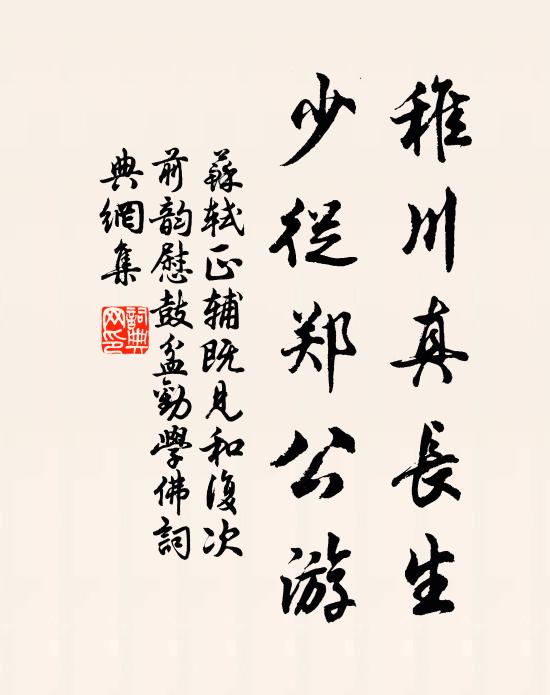 稚川真長生
少從郑公游
蘇軾正辅既見和復次
前韵慰鼓盆勸學佛詞
典網集
詞典網印